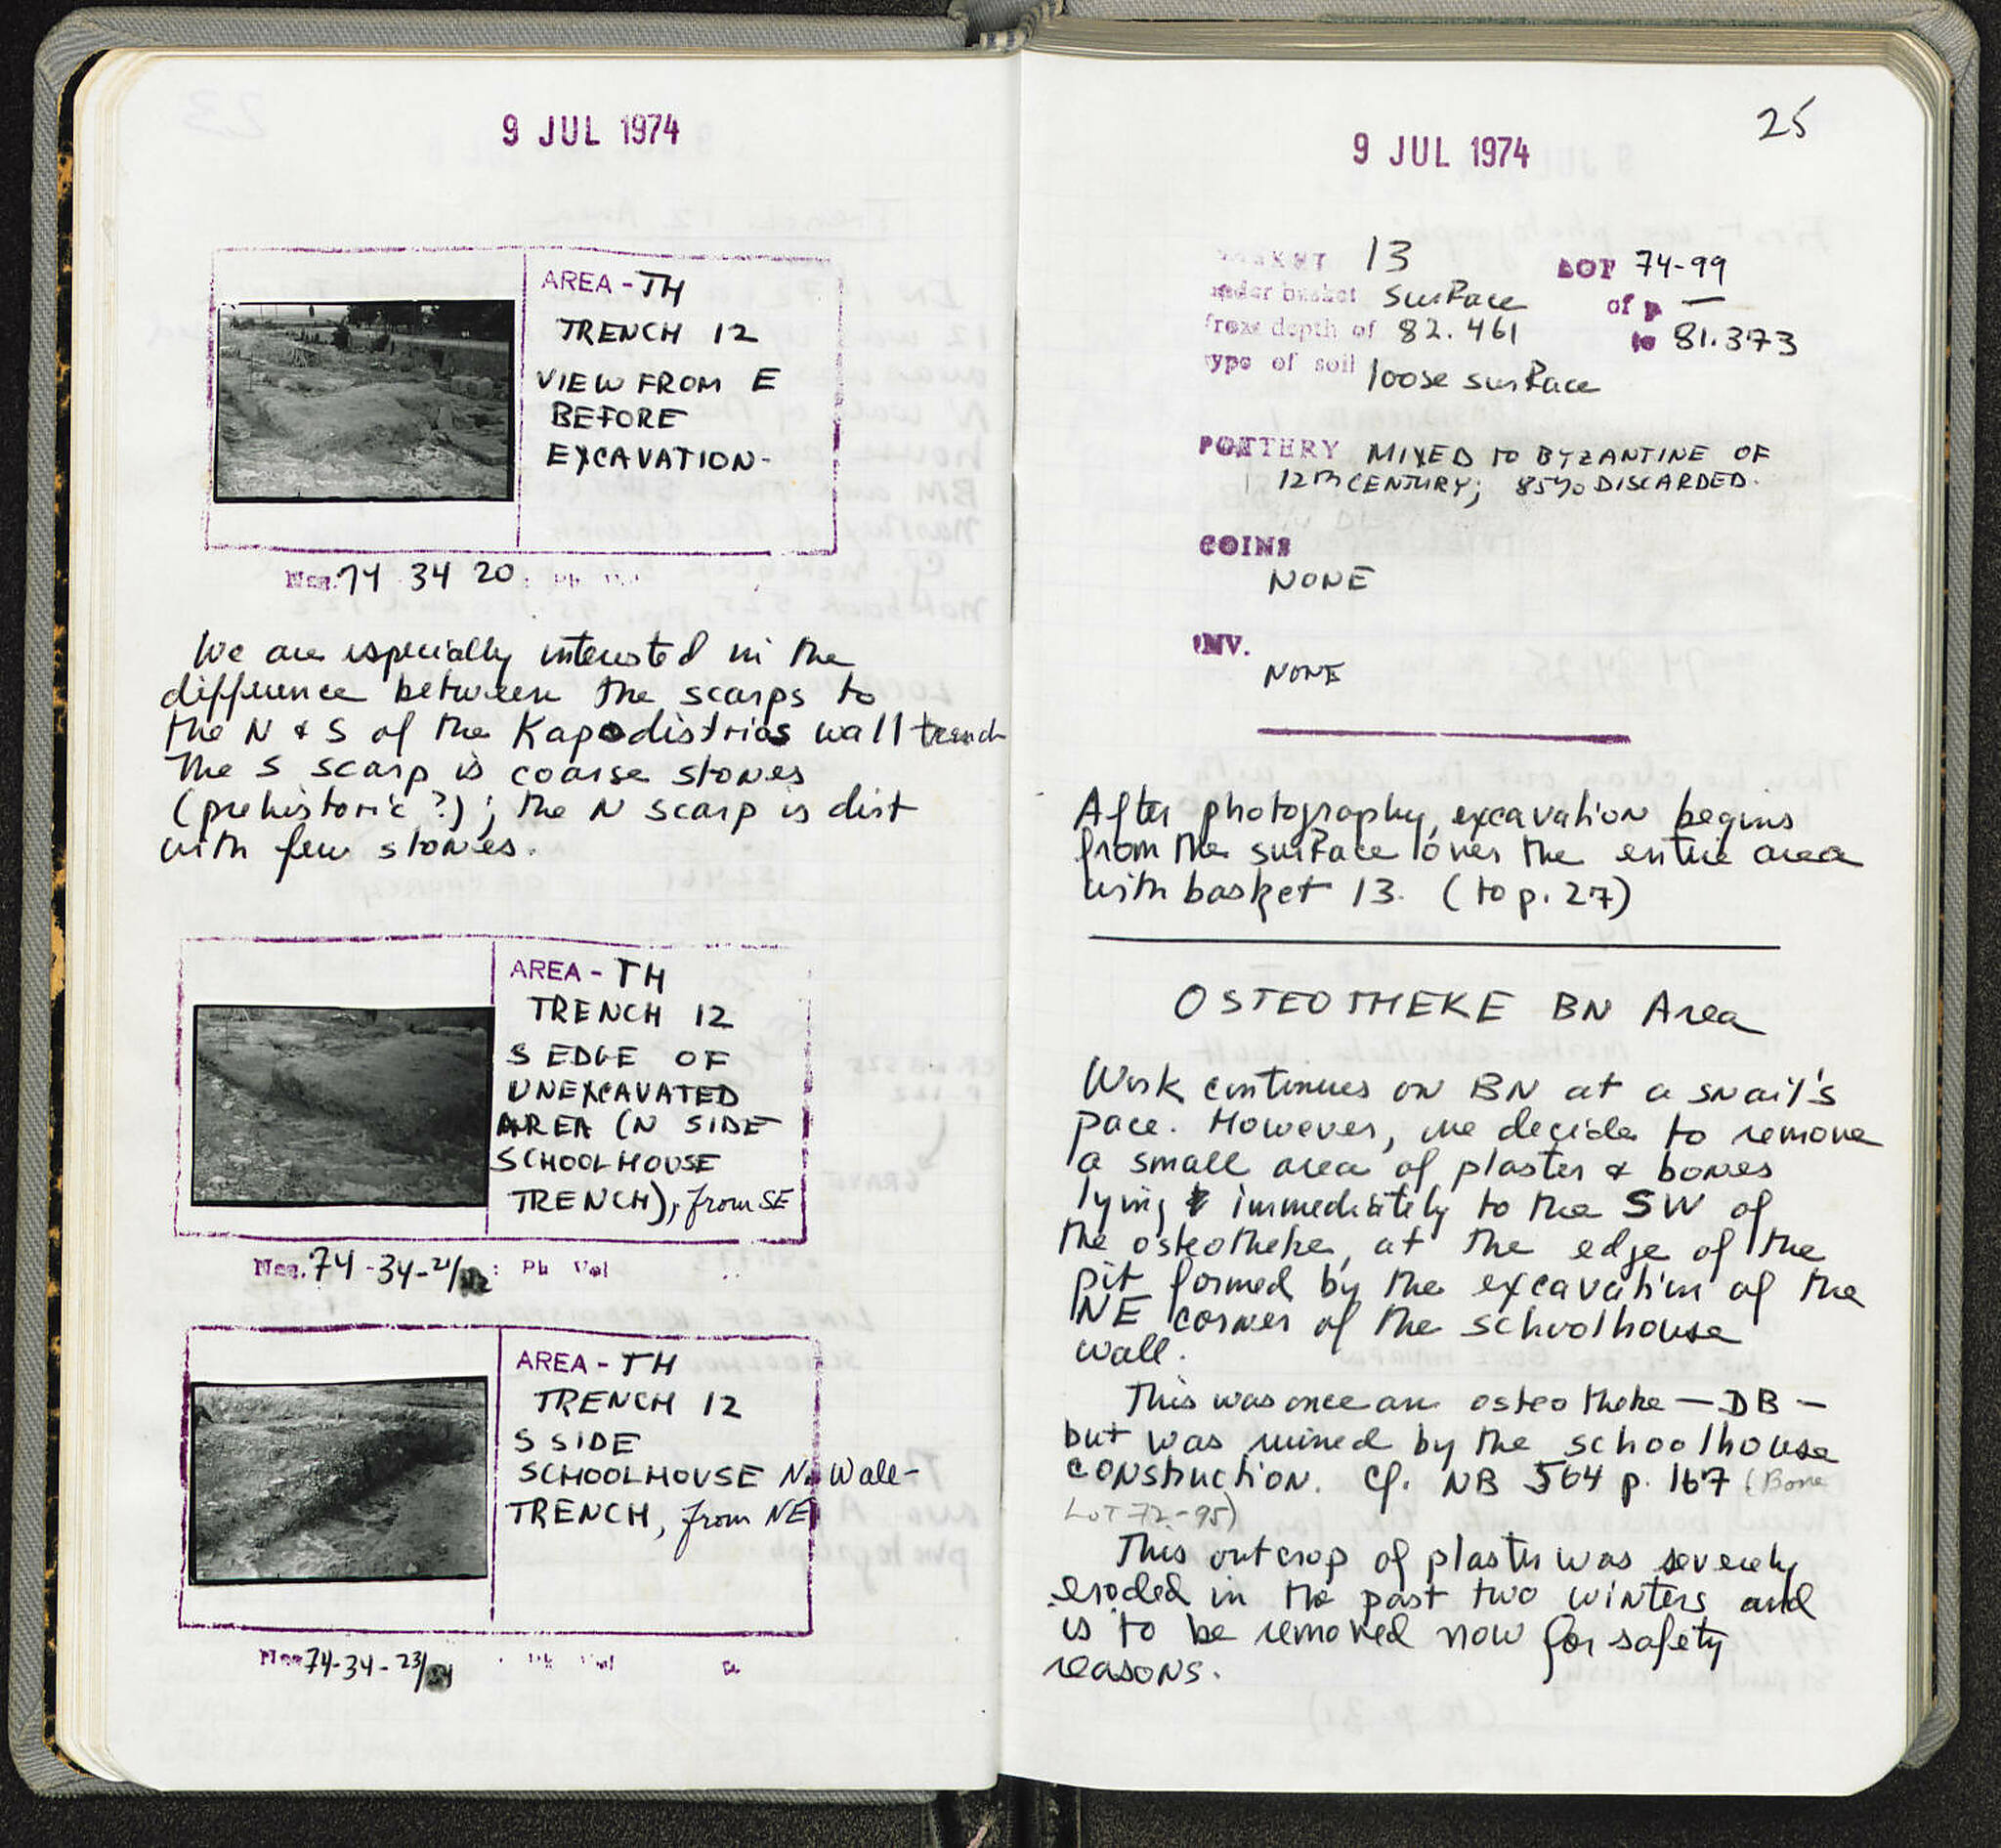 9 JUL 1974
AREA - TH
TRENCH 12
VIEW FROM E
BEFORE
EXCAVATION-
Neg. 74 34 20: Ph Vol
We are especially interested in the
difference between the scarps to
the N & S of the Kapodistrias wall trench
The S scarp is coarse stones
(prehistoric ?); the N scarp is dirt
with few stones.
AREA - TH
TRENCH 12
S EDGE OF
UNEXCAVATED
AREA (N SIDE
SCHOOLHOUSE
TRENCH), from SE
Neg. 74-34-21/22: Ph Vol
AREA - TH
TRENCH 12
S SIDE
SCHOOLHOUSE N. Wall-
TRENCH, from NE
Neg 74-34-23/24 Ph Vol
25
9 JUL 1974
BASKET 13 LOT 74-99
under basket surface of p —
from depth of 82.461 to 81.373
type of soil loose surface
POTTERY MIXED TO BYZANTINE OF
12th CENTURY; 85% DISCARDED.
COINS
NONE
INV.
NONE
After photography, excavation begins
from the surface over the entire area
with basket 13. (to p. 27)
OSTEOTHEKE BN Area
Work continues on BN at a snail's
pace. However, we decide to remove
a small area of plaster & bones
lying immediately to the SW of
the osteotheke, at the edge of the
pit formed by the excavation of the
NE corner of the schoolhouse
wall.
This was once an osteotheke — DB —
but was ruined by the schoolhouse
construction. Cf. NB 564 p. 167 (Bone
LOT 72-95)
This outcrop of plaster was severely
eroded in the past two winters and
is to be removed now for safety
reasons.